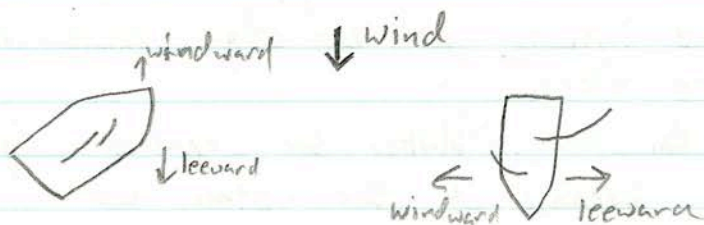 windward
wind
leeward
windward
leeward